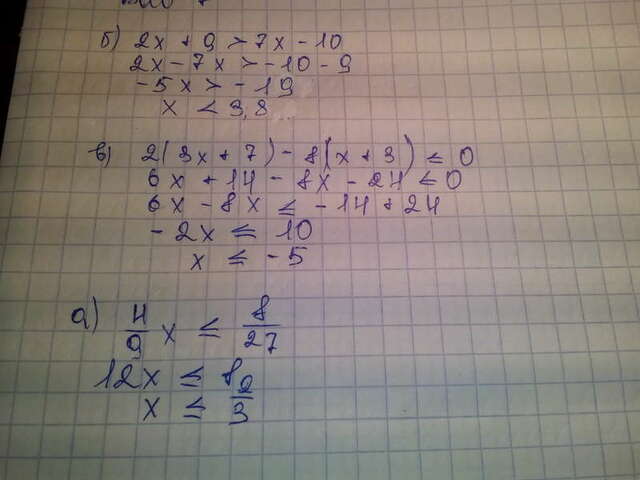 б) 2x + 9 > 7x - 10
2x - 7x > -10 - 9
-5x > -19
x < 3,8
в) 2(3x + 7) - 8(x + 3) ≤ 0
6x + 14 - 8x - 24 ≤ 0
6x - 8x ≤ -14 + 24
-2x ≤ 10
x ≤ -5
а) 4/9 x ≤ 8/27
12x ≤ 8
x ≤ 2/3